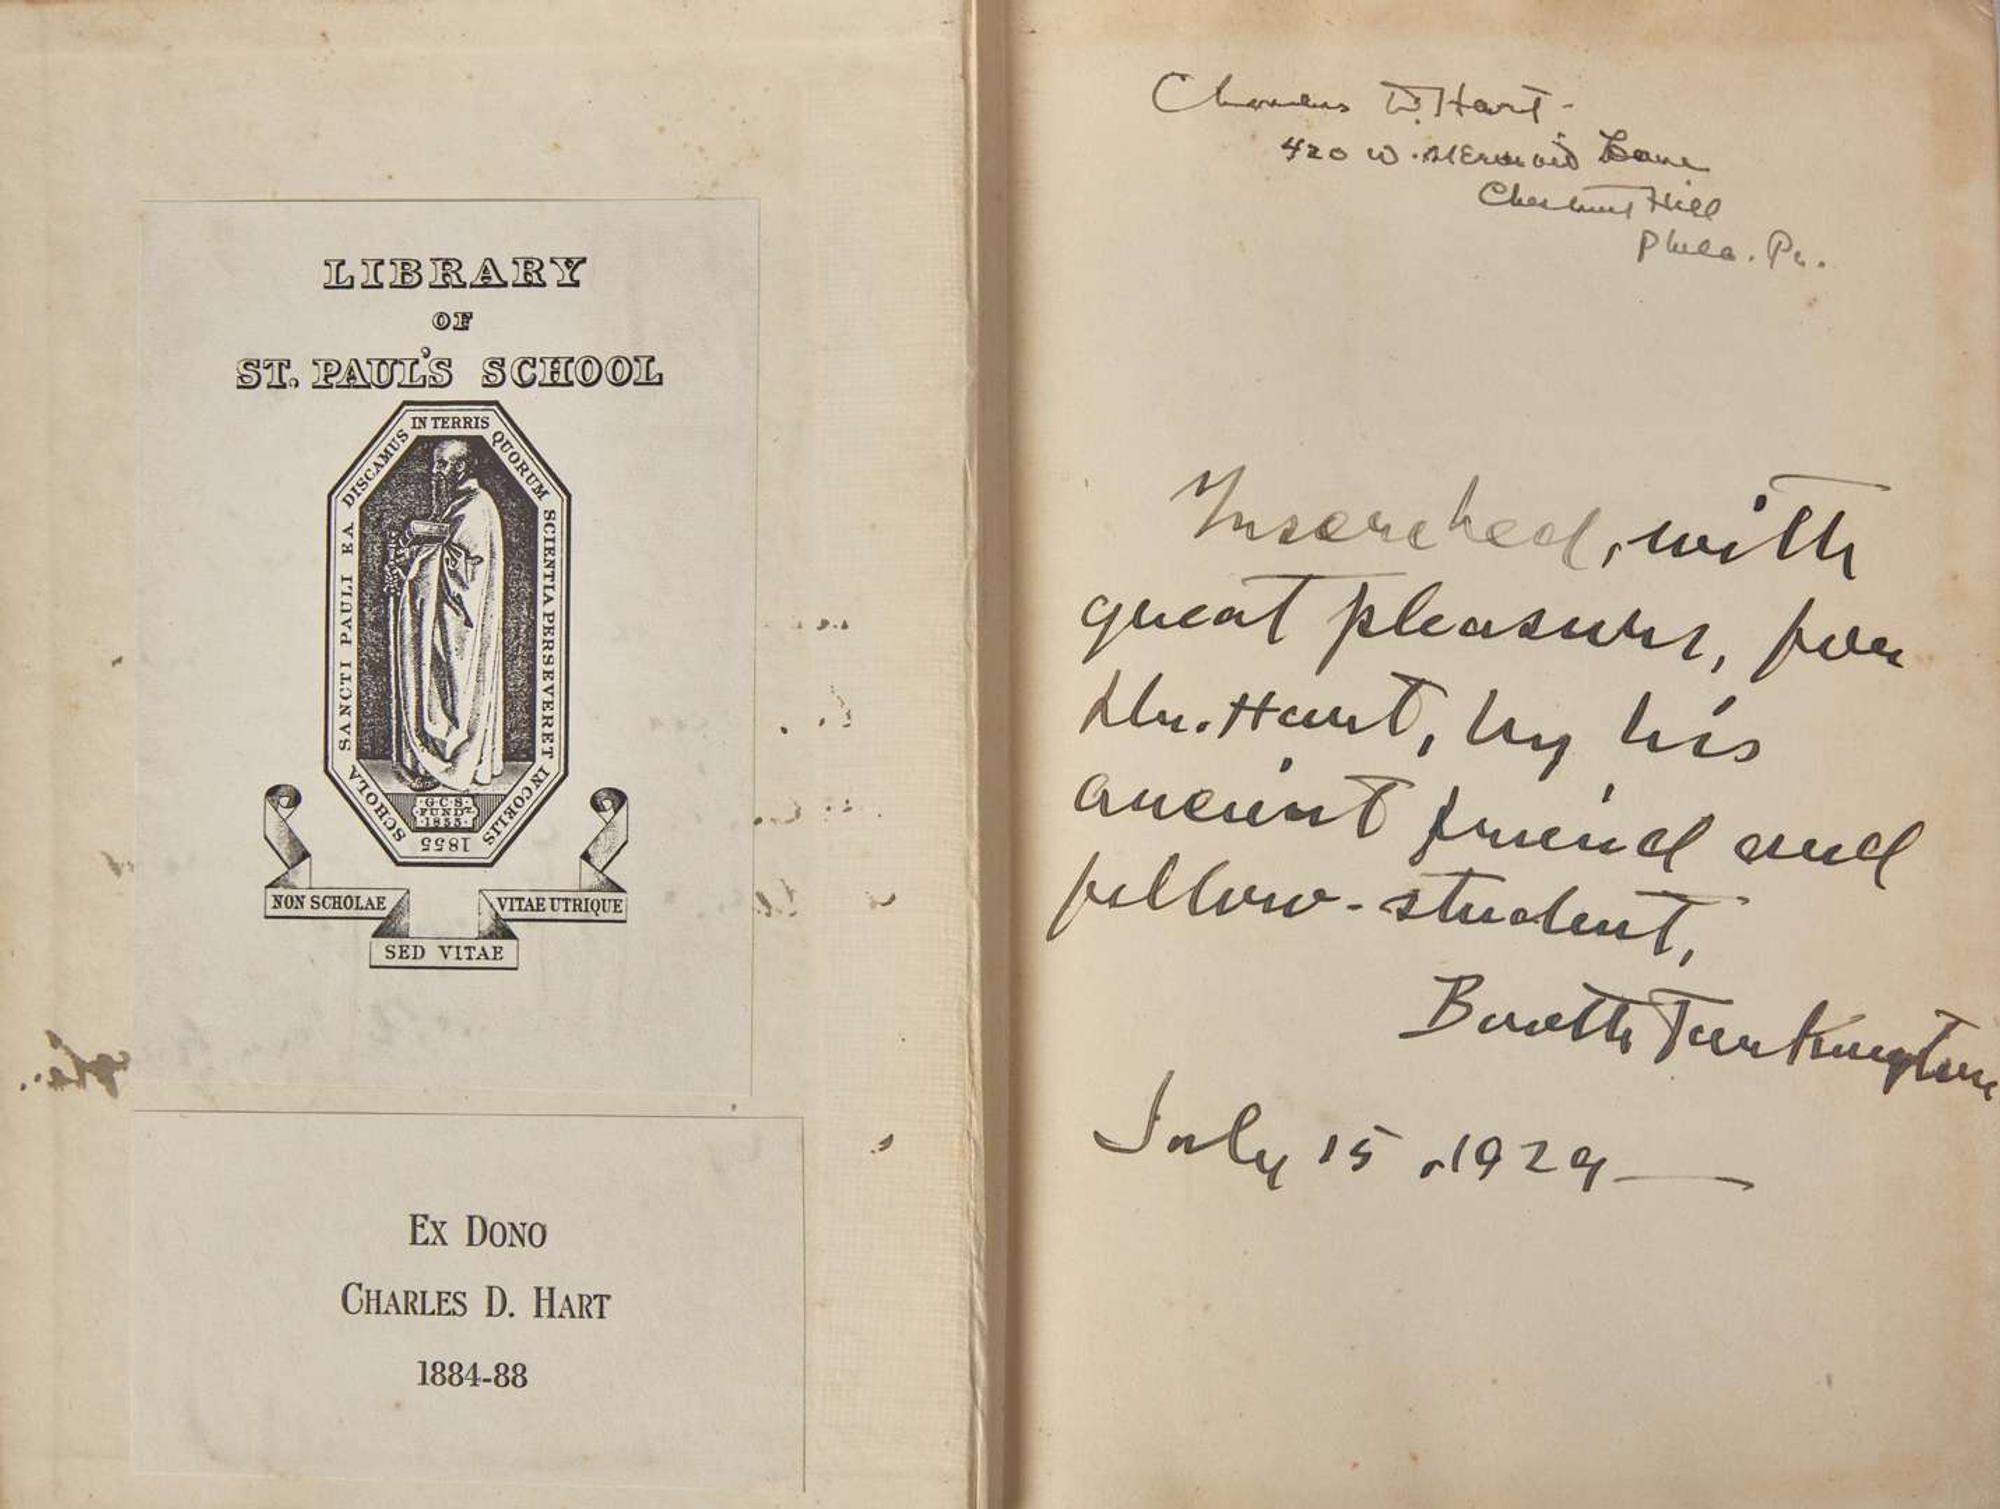 LIBRARY
OF
ST. PAUL'S SCHOOL
SCHOLA SANCTI PAULI EA DISCAMUS IN TERRIS QUORUM SCIENTIA PERSEVERET IN COELIS
·G·C·S·
FUNDT
·1855·
1855
NON SCHOLAE
SED VITAE
VITAE UTRIQUE
EX DONO
CHARLES D. HART
1884-88
Charles D. Hart-
420 W. Mermaid Lane
Chestnut Hill
Phila. Pa.
Inscribed, with
great pleasure, for
Dr. Hart, by his
ancient friend and
fellow-student,
Booth Tarkington
July 15, 1929